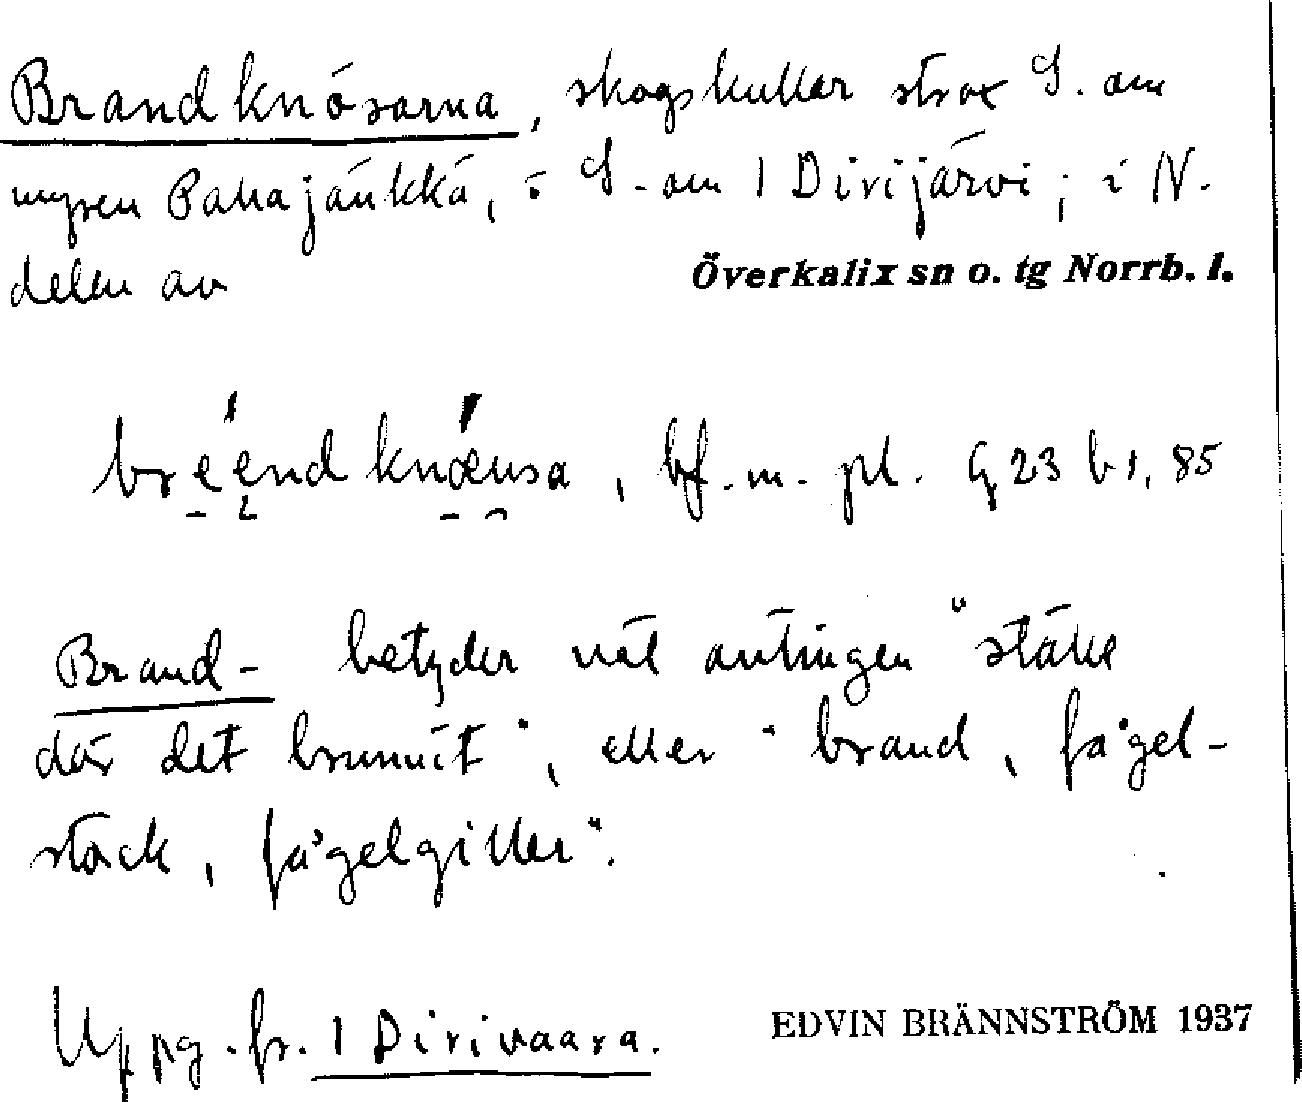 Brandknösarna, skogskullar strax S. om
myren Pahajänkkä, ö S. om 1 Dirijärvi; i N.
delen av Överkalix sn o. tg Norrb. l.
bf. m. pl. G 23 b 1, 85
Brand- betyder väl antingen "ställe
där det brunnit", eller "brand, fågel-
stock, fågelgiller".
Uppg. fr. 1 Dirivaara. EDVIN BRÄNNSTRÖM 1937